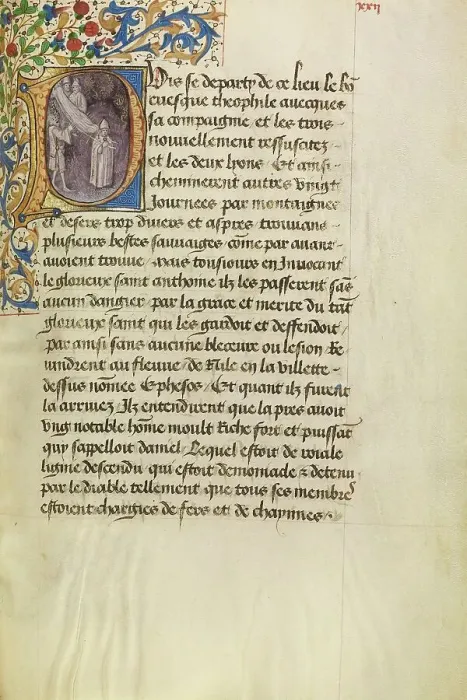 xxii
Puis se departy de ce lieu le bõ
euesque theophile auecques
sa compaignie et les trois
nouuellement ressuscitez
et les deux lyons Et ainsi
cheminerent autres vingt
Journees par montaignes
et desers trop diuers et aspres trouuans
plusieurs bestes sauuaiges cõme par auant
auoient trouue mais tousiours en Inuocant
le glorieux saint anthoine ilz les passerent sãs
aucun dangier par la grace et merite du tãt
glorieux saint qui les gardoit et deffendoit /
par ainsi sans aucune bleceure ou lesion Re
uindrent au fleuue / de Nile en la villette
dessus nõmee Ephesos / Et quant ilz furent
la arriuez Ilz entendirent que la pres auoit
vng notable hõme moult Riche fort et puissãt
quy sappelloit daniel / Lequel estoit de roiale
ligine descendu qui estoit demoniacle & detenu
par le diable tellement que tous ses membres
estoient chargies de fers et de chaynnes /